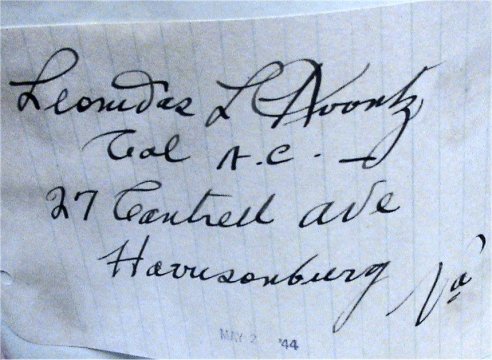 Leonidas L Koontz
Col A.C.
27 Cantrell Ave
Harrisonburg Va
MAY 2 '44